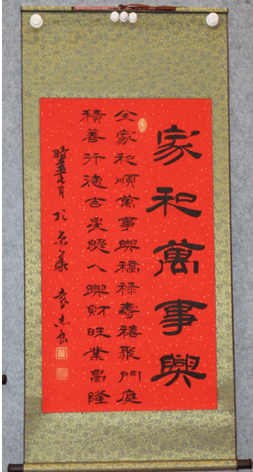 家和萬事興
全家和順萬事興福祿壽禧聚門庭
積善行德吉星照人興財旺業昌隆
月於京華 袁志